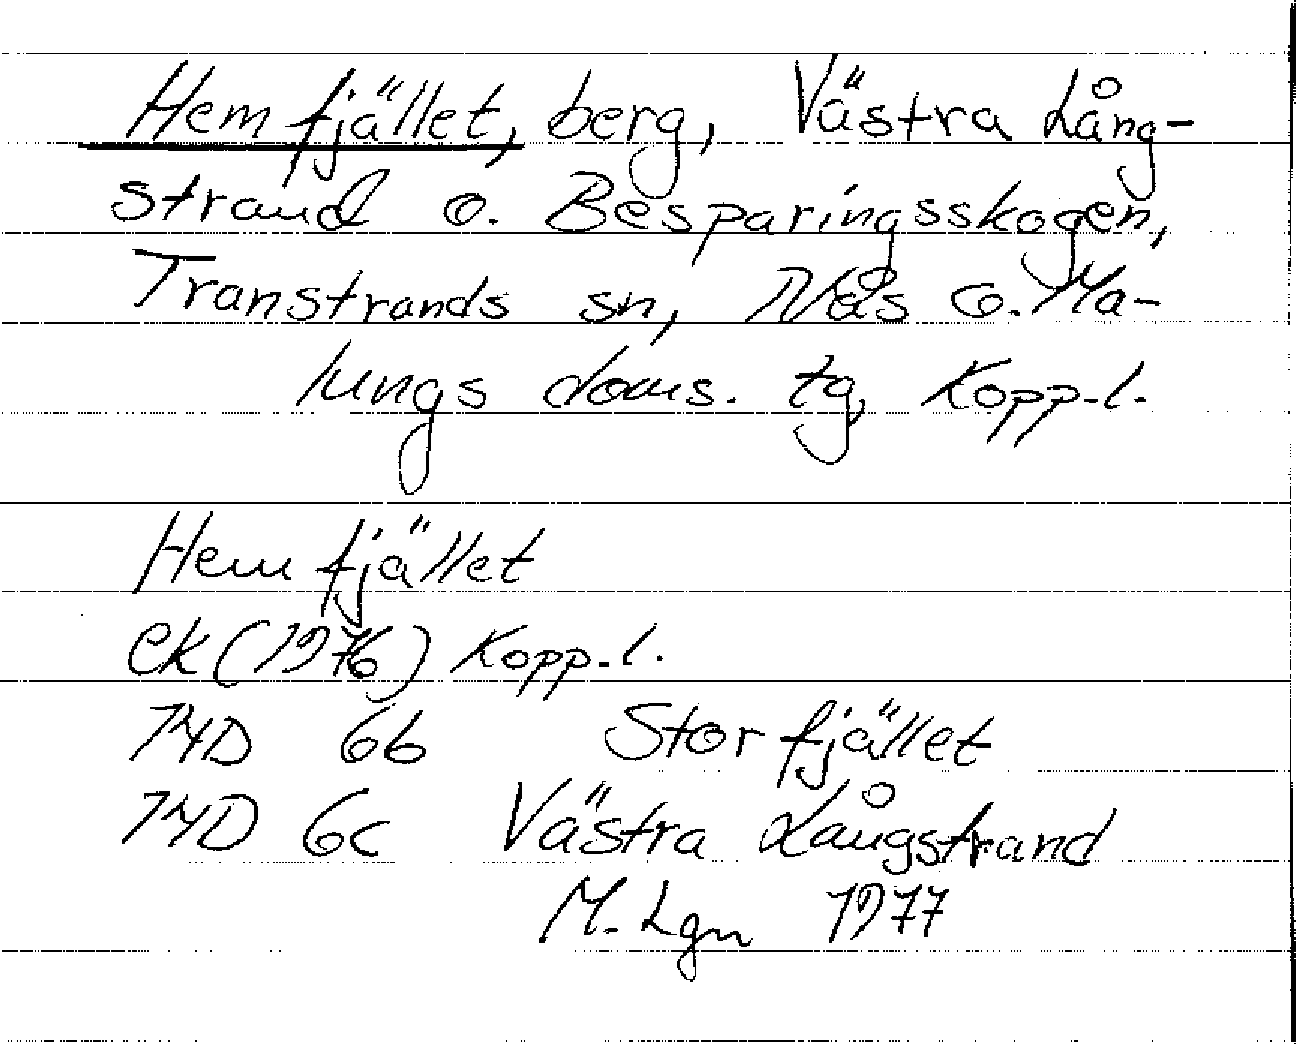 Hemfjället, berg, Västra Lång-
strand o. Besparingsskogen,
Transtrands sn, Nås o. Ma-
lungs doms. tg, Kopp.l.
Hemfjället
ek (1976) Kopp.l.
14D 6b Storfjället
14D 6c Västra Långstrand
M. Lgn 1977